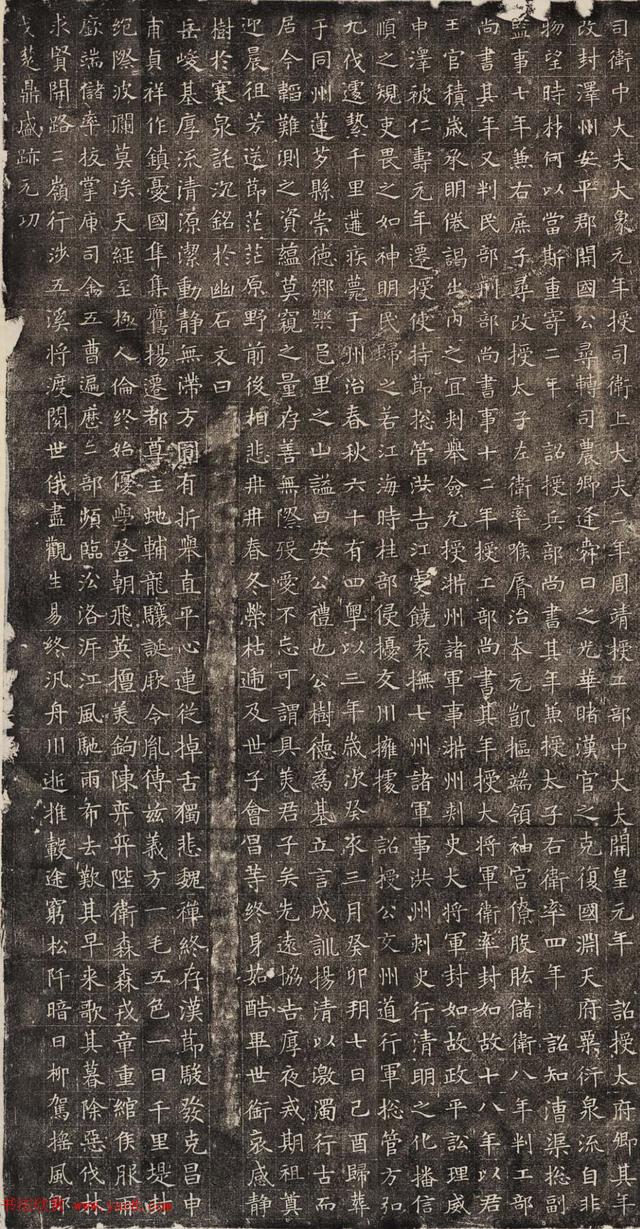 司衛中大夫大象元年授司衛上大夫二年周靖授工部中大夫開皇元年 詔授太府卿其年
改封澤州安平郡開國公尋轉司農卿逢舜日之光華睹漢官之克復國淵天府粟衍泉流自非
物望時材何以當斯重寄二年 詔授兵部尚書其年兼授太子右衛率四年 詔知漕渠總副
監事七年兼右庶子尋改授太子左衛率喉脣治本元凱樞端領袖宮僚股肱儲衛八年判工部
尚書其年又判民部刑部尚書事十二年授工部尚書其年授大將軍衛率封如故十八年以君
王官積歲承明倦謁出內之宜刾舉僉允授浙州諸軍事浙州刺史大將軍封如故政平訟理威
申澤被仁壽元年遷授使持節總管洪吉江虔饒袁撫七州諸軍事洪州刺史行清明之化播信
順之規吏畏之如神明民歸之若江海時桂部侵擾交川擁據 詔授公交州道行軍總管方弘
九伐遽墊千里遘疾薨于州治春秋六十有四粵以三年歲次癸亥三月癸卯朔七日己酉歸葬
于同州蓮芍縣崇德鄉樂邑里之山謚曰安公禮也公樹德為基立言成訓揚清以激濁行古而
居今韜難測之資蘊莫窺之量存善無際歿愛不忘可謂具美君子矣先遠協吉厚夜戒期祖奠
迎晨徂芳送節茫茫原野前後相悲冉冉春冬榮枯遞及世子會昌等終身茹酷畢世銜哀感靜
樹於寒泉託沉銘於幽石文曰
岳峻基厚流清源潔動靜無滯方圓有折舉直平心連從掉舌獨悲魏禪終存漢節駿發克昌申
甫貞祥作鎮憂國隼集鷹揚遷都尊主虵輔龍驤誕厥令胤傳茲義方一毛五色一日千里堤封
紀際波瀾莫涘天經至極人倫終始優學登朝飛英擅美鉤陳弈弈陛衛森森戎章重綰侯服
廞端儲率拔掌庫司禽五曹遍歷二部頻臨沿洛泝江風馳雨布去歎其早來歌其暮除惡伐
求賢開路二嶺行涉五溪將渡閱世俄盡觀生易終汎舟川逝推轂途窮松阡暗日柳駕搖風
鼎盛跡元功
www.yac8.com